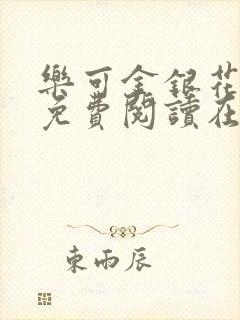 樂可金銀花
免費閱讀在
東雨辰